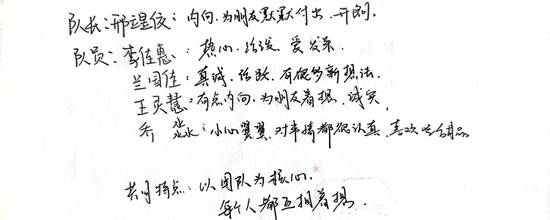 队长：邢星佼：内向、为朋友默默付出、开朗
队员：李佳惠：核心、活泼、爱发呆
兰国佳：真诚、活跃、有很多新想法
王灵慧：有点内向、为朋友着想、诚实
乔淼：小心翼翼、对事情都很认真、喜欢吃甜品
共同特点：以团队为核心、
每个人都互相着想、